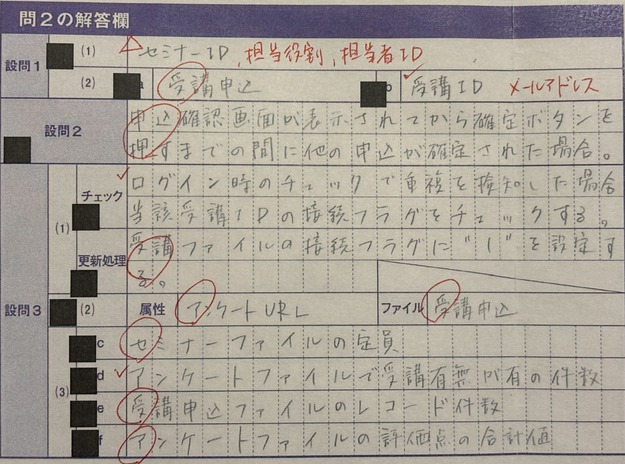 問2の解答欄
設問1 (1) セミナーID, 担当役割, 担当者ID
(2) 受講申込 b 受講ID メールアドレス
設問2 申込確認画面が表示されてから確定ボタンを
押すまでの間に他の申込が確定された場合。
設問3 (1) チェック ログイン時のチェックで重複を検知した場合
当該受講IDの接続フラグをチェックする。
更新処理 受講ファイルの接続フラグに"1"を設定す
る。
(2) 属性 アンケートURL ファイル 受講申込
(3) c セミナーファイルの定員
d アンケートファイルで受講有無が有の件数
e 受講申込ファイルのレコード件数
f アンケートファイルの評価点の合計値